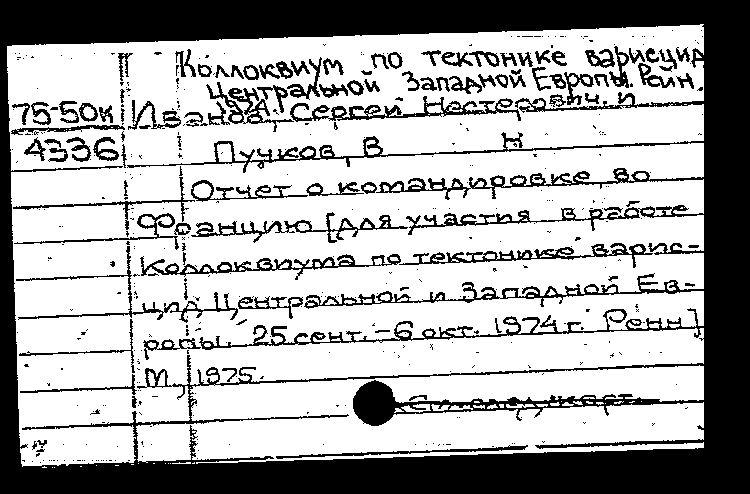 Коллоквиум по тектонике варисцид
Центральной Западной Европы. Рейн.
1974.
75-50к Иванов, Сергей Нестерович. и
4336 Пучков, В Н
Отчет о командировке во
Францию [для участия в работе
Коллоквиума по тектонике варис-
цид Центральной и Западной Ев-
ропы. 25 сент. - 6 окт. 1974 г. Ренн]
М, 1975.